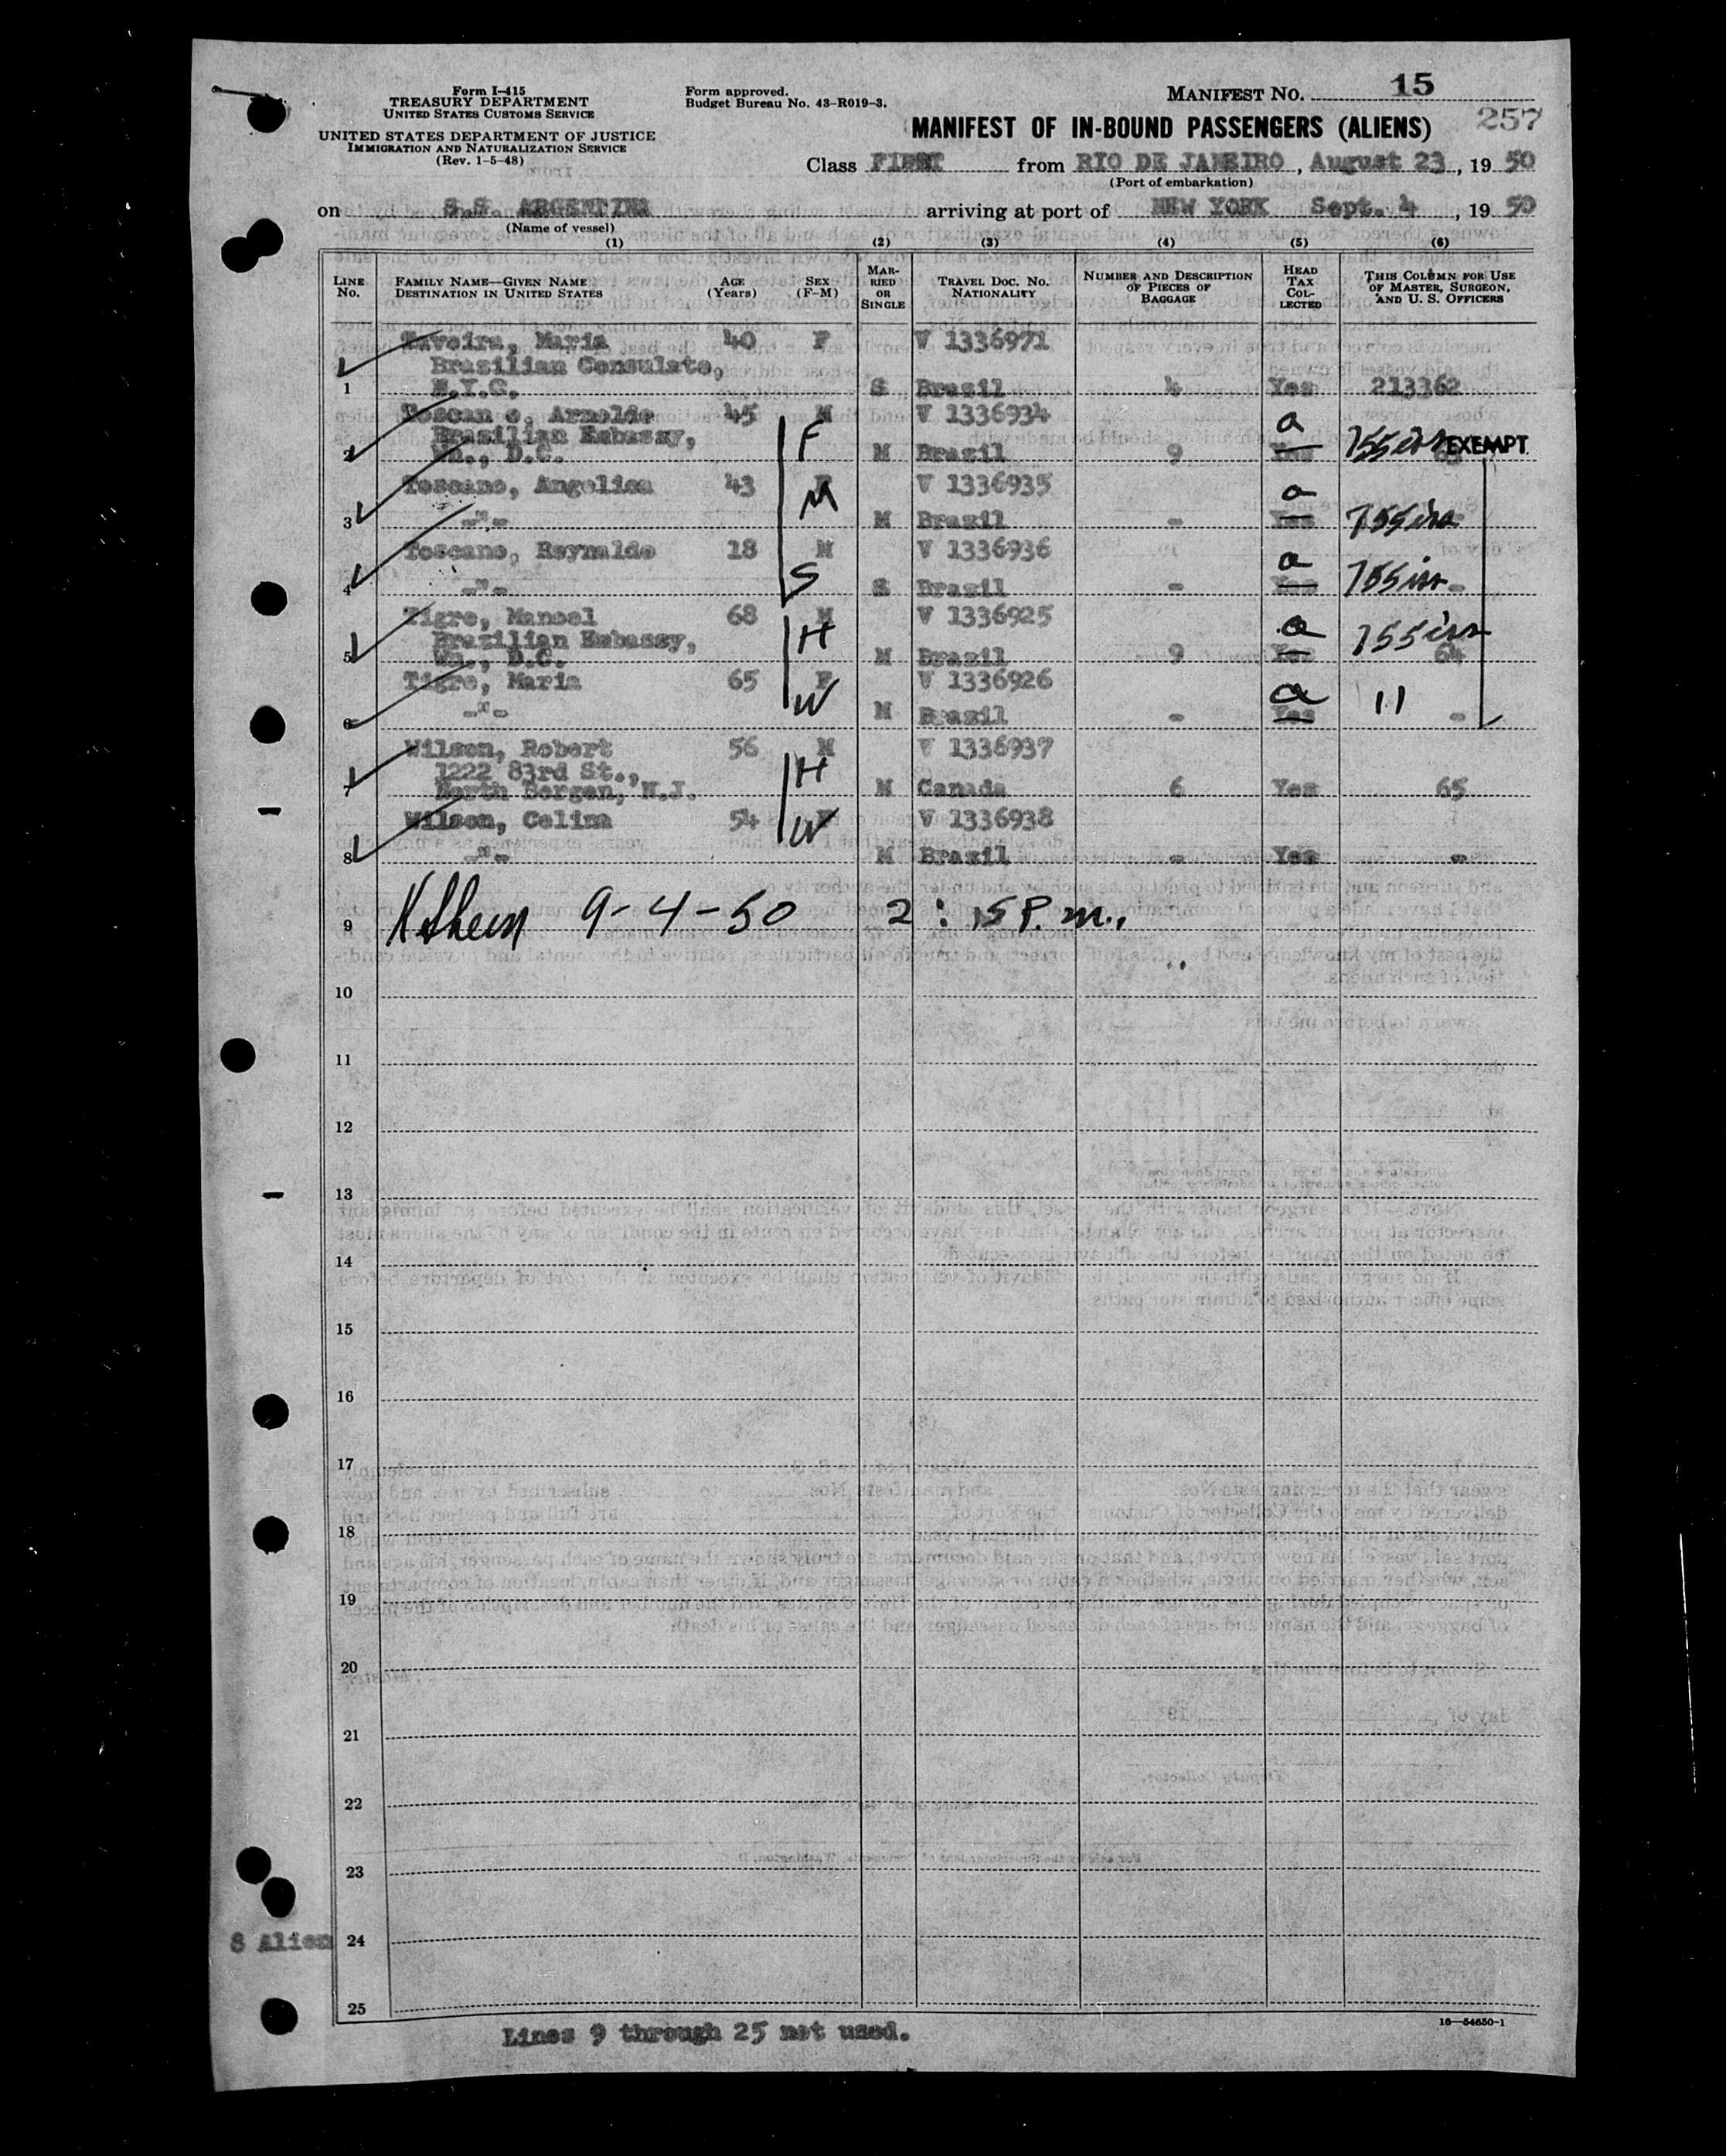 Form I-415
TREASURY DEPARTMENT
UNITED STATES CUSTOMS SERVICE
UNITED STATES DEPARTMENT OF JUSTICE
IMMIGRATION AND NATURALIZATION SERVICE
(Rev. 1-5-48)
Form approved.
Budget Bureau No. 43-R019-3.
MANIFEST NO. 15
257
MANIFEST OF IN-BOUND PASSENGERS (ALIENS)
Class FIRST from RIO DE JANEIRO, August 23, 1950
(Port of embarkation)
on S.S. ARGENTINA arriving at port of NEW YORK Sept. 4, 1950
(Name of vessel)
(1) (2) (3) (4) (5) (6)
LINE No. FAMILY NAME—GIVEN NAME DESTINATION IN UNITED STATES AGE (Years) SEX (F-M) MARRIED OR SINGLE TRAVEL DOC. NO. NATIONALITY NUMBER AND DESCRIPTION OF PIECES OF BAGGAGE HEAD TAX COLLECTED THIS COLUMN FOR USE OF MASTER, SURGEON, AND U. S. OFFICERS
Taveira, Maria 40 F V 1336971
Brazilian Consulate,
1 N.Y.C. S Brazil 4 Yes 213362
Toscano, Arnaldo 45 M V 1336934 a
Brazilian Embassy, F EXEMPT
2 Wn., D.C. M Brazil 9 Yes 63
Toscano, Angelica 43 F V 1336935 a
M
3 -"- M Brazil - Yes
Toscano, Reynaldo 18 M V 1336936 a
S
4 -"- S Brazil - Yes -
Tigre, Manoel 68 M V 1336925 a
Brazilian Embassy, H
5 Wn., D.C. M Brazil 9 Yes 64
Tigre, Maria 65 F V 1336926 a 11
W
6 -"- M Brazil - Yes -
Wilson, Robert 56 M V 1336937
1222 83rd St., H
7 North Bergen, N.J. M Canada 6 Yes 65
Wilson, Celina 54 F V 1336938
W
8 -"- M Brazil - Yes -
9 9-4-50 2:15 P.m.,
10
11
12
13
14
15
16
17
18
19
20
21
22
23
8 Alien 24
25
16—54650-1
Lines 9 through 25 not used.